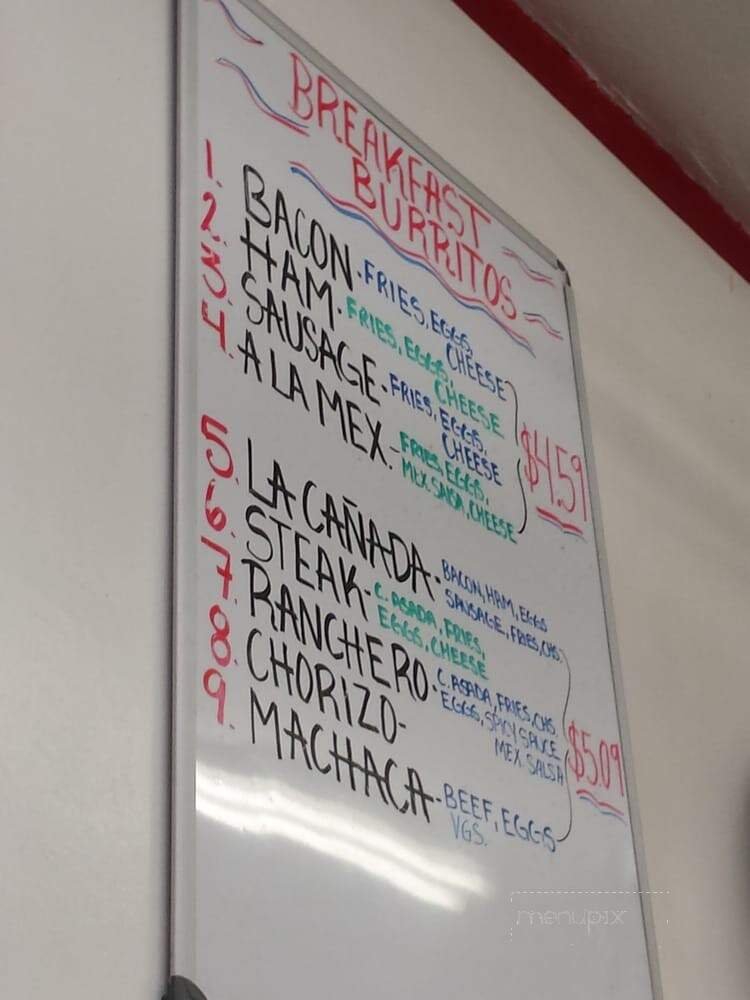 BREAKFAST
BURRITOS
1. BACON. FRIES, EGGS,
CHEESE
2. HAM. FRIES, EGGS,
CHEESE
3. SAUSAGE. FRIES, EGGS,
CHEESE
4. A LA MEX. FRIES, EGGS,
MEX SALSA, CHEESE
$4.59
5. LA CAÑADA. BACON, HAM, EGGS
SAUSAGE, FRIES, CHS.
6. STEAK. C. ASADA, FRIES,
EGGS, CHEESE
7. RANCHERO. C. ASADA, FRIES, CHS.
EGGS, SPICY SAUCE
MEX. SALSA
8. CHORIZO-
9. MACHACA- BEEF, EGGS
VGS.
$5.09
menupix